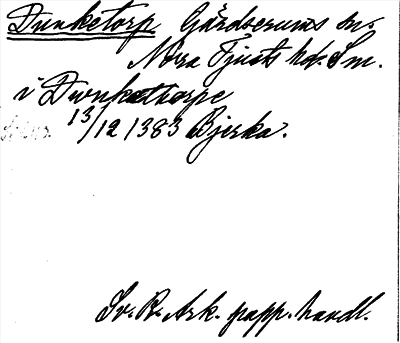 Dunketorp Gårdserums sn.
Norra Tjusts hd. Sm.
i Dwnkathorpe
13/12 1383 Bjerka.
Sv. R. Ark. papp. handl.